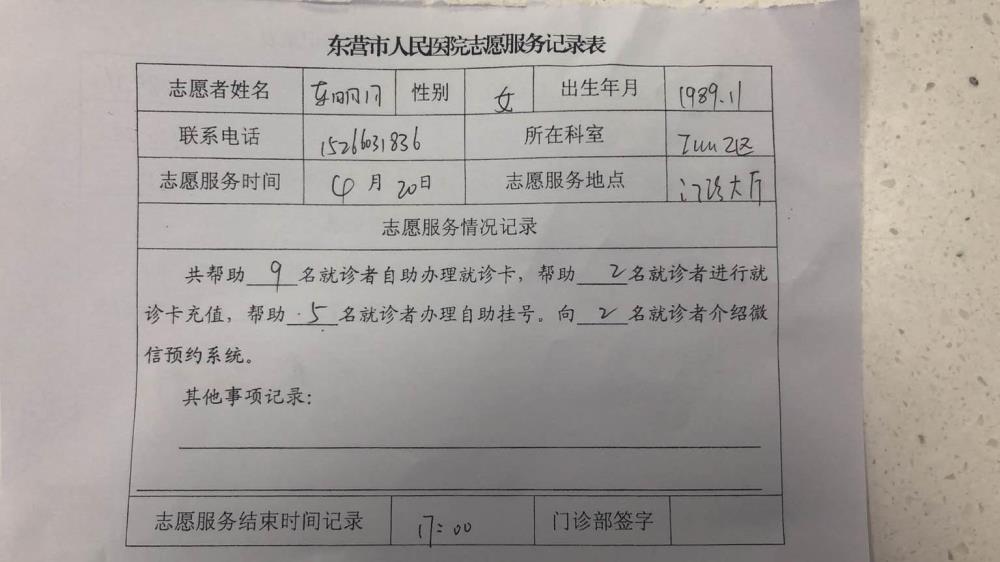 东营市人民医院志愿服务记录表
志愿者姓名 性别 女 出生年月 1989.11
联系电话 15266031836 所在科室
志愿服务时间 4月20日 志愿服务地点 门诊大厅
志愿服务情况记录
共帮助 9 名就诊者自助办理就诊卡，帮助 2 名就诊者进行就
诊卡充值，帮助 5 名就诊者办理自助挂号。向 2 名就诊者介绍微
信预约系统。
其他事项记录：
志愿服务结束时间记录 17:00 门诊部签字